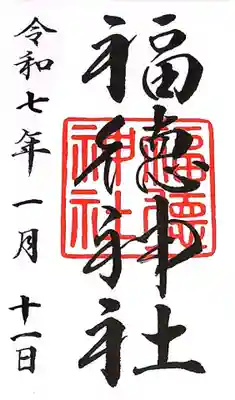 福徳神社
福德
神社
令和七年一月十一日